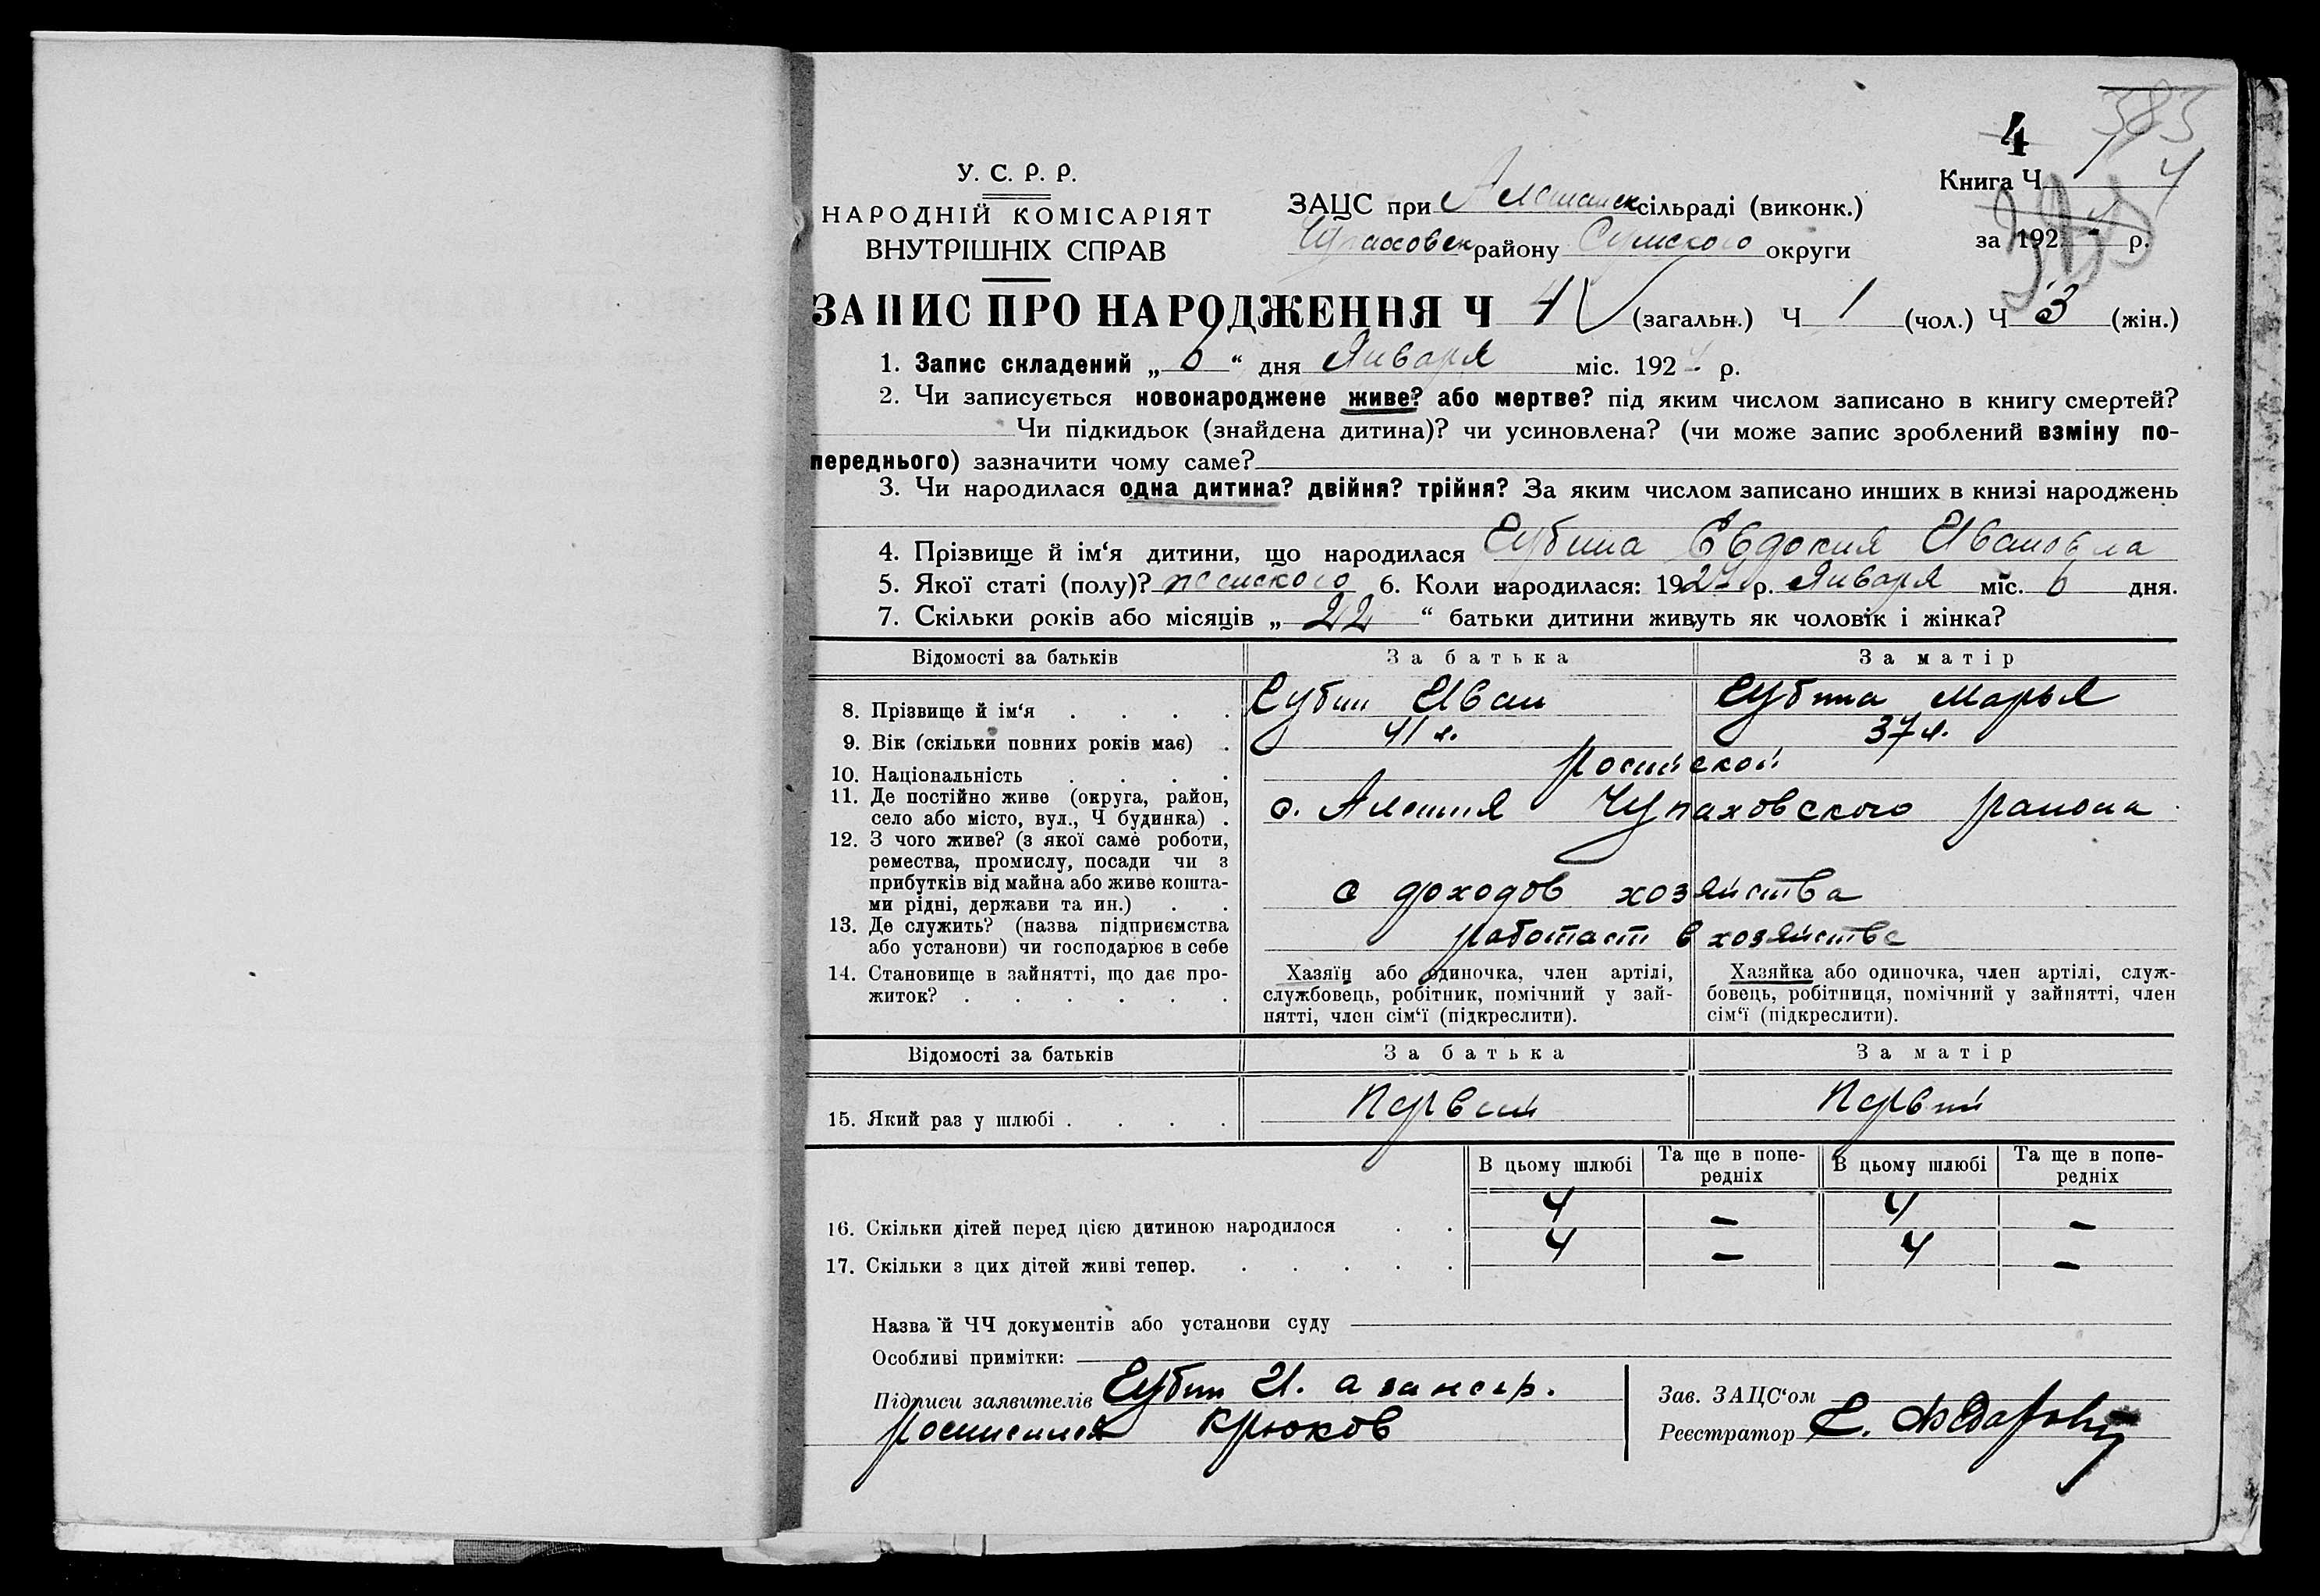 383
4
У. С. Р. Р.
НАРОДНІЙ КОМІСАРІЯТ
ВНУТРІШНІХ СПРАВ
ЗАЦС при сільраді (виконк.)
Чупаховск району Сумского округи
Книга Ч. 1 4
за 192 р.
ЗАПИС ПРО НАРОДЖЕННЯ Ч 4 (загальн.) Ч 1 (чол.) Ч 3 (жін.)
1. Запис складений „ 6 “ дня Января міс. 192 р.
2. Чи записується новонароджене живе? або мертве? під яким числом записано в книгу смертей?
Чи підкидьок (знайдена дитина)? чи усиновлена? (чи може запис зроблений взміну по-
переднього) зазначити чому саме?
3. Чи народилася одна дитина? двійня? трійня? За яким числом записано инших в книзі народжень
4. Прізвище й ім‘я дитини, що народилася Губина Евдокия Ивановна
5. Якої статі (полу)? женского 6. Коли народилася: 192 р. Января міс. 6 дня.
7. Скільки років або місяців „ 22 “ батьки дитини живуть як чоловік і жінка?
Відомості за батьків За батька За матір
8. Прізвище й ім‘я . . . . Губин Иван Губина Марья
9. Вік (скільки повних років має) . 41 л. 37 л.
10. Національність . . . . росийской
11. Де постійно живе (округа, район,
село або місто, вул., Ч будинка) . с. Алешня Чупаховского района
12. З чого живе? (з якої саме роботи,
ремества, промислу, посади чи з
прибутків від майна або живе кошта-
ми рідні, держави та ин.) . . с доходов хозяйства
13. Де служить? (назва підприємства
або установи) чи господарює в себе работает в хозяйстве
14. Становище в зайнятті, що дає про-
житок? . . . . . .
Хазяїн або одиночка, член артілі,
службовець, робітник, помічний у зай-
нятті, член сім‘ї (підкреслити).
Хазяйка або одиночка, член артілі, служ-
бовець, робітниця, помічний у зайнятті, член
сім‘ї (підкреслити).
Відомості за батьків За батька За матір
15. Який раз у шлюбі . . . . Первый Первый
В цьому шлюбі Та ще в попе-
редніх В цьому шлюбі Та ще в попе-
редніх
16. Скільки дітей перед цією дитиною народилося . . 4 – 4 –
17. Скільки з цих дітей живі тепер. . . . . . 4 – 4 –
Назва й ЧЧ документів або установи суду
Особливі примітки:
Підписи заявителів Губин И. а за негр.
росписался Крюков
Зав. ЗАЦС‘ом
Реєстратор